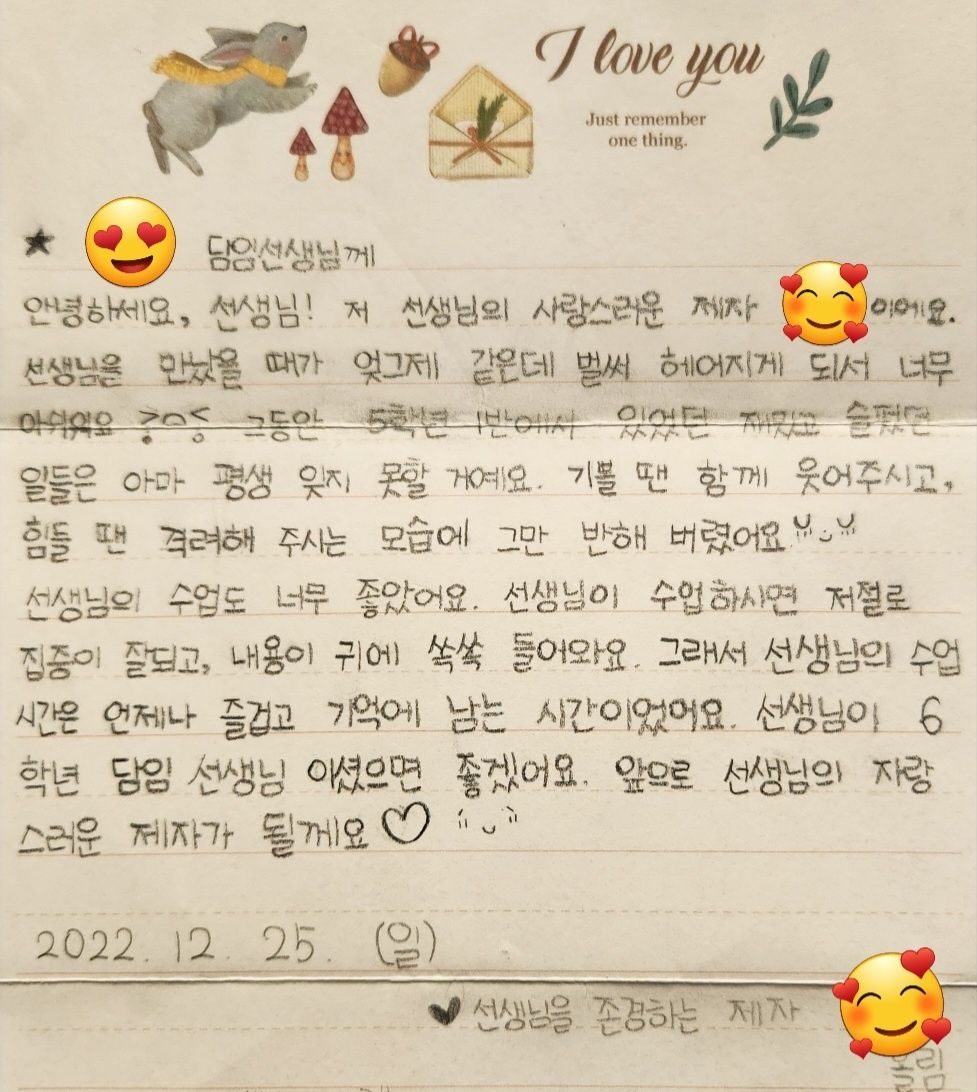 I love you
Just remember
one thing.
★ 담임선생님께
안녕하세요, 선생님! 저 선생님의 사랑스러운 제자 이에요.
선생님을 만났을 때가 엊그제 같은데 벌써 헤어지게 되서 너무
아쉬워요 그동안 5학년 1반에서 있었던 재밌고 슬펐던
일들은 아마 평생 잊지 못할 거예요. 기쁠 땐 함께 웃어주시고,
힘들 땐 격려해 주시는 모습에 그만 반해 버렸어요
선생님의 수업도 너무 좋았어요. 선생님이 수업하시면 저절로
집중이 잘되고, 내용이 귀에 쏙쏙 들어와요. 그래서 선생님의 수업
시간은 언제나 즐겁고 기억에 남는 시간이었어요. 선생님이 6
학년 담임 선생님 이셨으면 좋겠어요. 앞으로 선생님의 자랑
스러운 제자가 될께요♡
2022. 12. 25. (일)
♥선생님을 존경하는 제자
올림